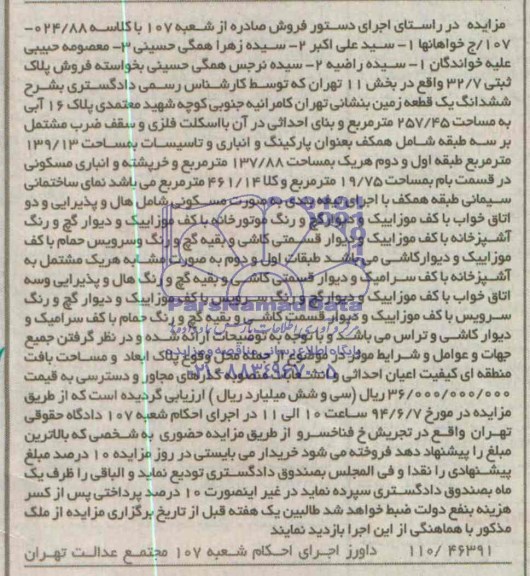 مزایده در راستای اجرای دستور فروش صادره از شعبه ۱۰۷ با کلاسه ۰۲۴/۸۸-
۱۰۷/ج خواهانها ۱- سید علی اکبر ۲- سیده زهرا همگی حسینی ۳- معصومه حبیبی
علیه خواندگان ۱- سیده راضیه ۲- سیده نرجس همگی حسینی بخواسته فروش پلاک
ثبتی ۳۲/۷ واقع در بخش ۱۱ تهران که توسط کارشناس رسمی دادگستری بشرح
ششدانگ یک قطعه زمین بنشانی تهران کامرانیه جنوبی کوچه شهید معتمدی پلاک ۱۶ آبی
به مساحت ۲۵۷/۴۵ مترمربع و بنای احداثی در آن بااسکلت فلزی و سقف ضرب مشتمل
بر سه طبقه شامل همکف بعنوان پارکینگ و انباری و تاسیسات بمساحت ۱۳۹/۱۳
مترمربع طبقه اول و دوم هریک بمساحت ۱۳۷/۸۸ مترمربع و خرپشته و انباری مسکونی
در قسمت بام بمساحت ۱۹/۷۵ مترمربع و کلا ۴۶۱/۱۴ مترمربع می باشد نمای ساختمانی
سیمانی طبقه همکف با اجرای تیغه بندی به صورت مسکونی شامل هال و پذیرایی و دو
اتاق خواب با کف موزاییک و دیوار گچ و رنگ موتورخانه با کف موزاییک و دیوار گچ و رنگ
آشپزخانه با کف موزاییک و دیوار قسمتی کاشی و بقیه گچ و رنگ وسرویس حمام با کف
موزاییک و دیوارکاشی می باشد طبقات اول و دوم به صورت مشابه هریک مشتمل به
آشپزخانه با کف سرامیک و دیوار قسمتی کاشی و بقیه گچ و رنگ هال و پذیرایی وسه
اتاق خواب با کف موزاییک و دیوار گچ و رنگ سرویس با کف موزاییک و دیوار گچ و رنگ
سرویس با کف موزاییک و دیوار قسمت کاشی و بقیه گچ و رنگ حمام با کف سرامیک و
دیوار کاشی و تراس می باشد و با توجه به توضیحات ارائه شده و در نظر گرفتن جمیع
جهات و عوامل و شرایط موثر در موضوع از جمله محل وقوع پلاک ابعاد و مساحت بافت
منطقه ای کیفیت اعیان احداثی و انشعابات منصوبه گذرهای مجاور و دسترسی به قیمت
۳۶/۰۰۰/۰۰۰/۰۰۰ ریال (سی و شش میلیارد ریال) ارزیابی گردیده است که از طریق
مزایده در مورخ ۹۴/۶/۷ ساعت ۱۰ الی ۱۱ در اجرای احکام شعبه ۱۰۷ دادگاه حقوقی
تهران واقع در تجریش خ فناخسرو از طریق مزایده حضوری به شخصی که بالاترین
مبلغ را پیشنهاد دهد فروخته می شود خریدار می بایستی در روز مزایده ۱۰ درصد مبلغ
پیشنهادی را نقدا و فی المجلس بصندوق دادگستری تودیع نماید و الباقی را ظرف یک
ماه بصندوق دادگستری سپرده نماید در غیر اینصورت ۱۰ درصد پرداختی پس از کسر
هزینه بنفع دولت ضبط خواهد شد طالبین یک هفته قبل از تاریخ برگزاری مزایده از ملک
مذکور با هماهنگی از این اجرا بازدید نمایند
۱۱۰/ ۴۶۳۹۱ داورز اجرای احکام شعبه ۱۰۷ مجتمع عدالت تهران
ParsNamadData
پایگاه اطلاع رسانی مناقصه و مزایده
۰۲۱-۸۸۳۴۹۶۷۰-۵